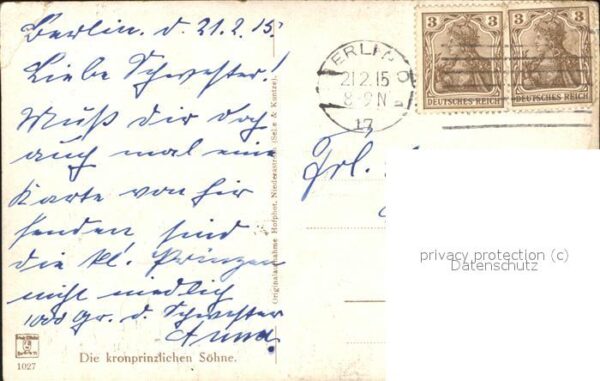 Berlin. d. 21.2.15.
Liebe Schwester!
Muß dir doch
auch mal eine
Karte von hir
senden, sind
die kl. Prinzen
nicht niedlich
1000 Gr. d. Schwester
Anna.
Die kronprinzlichen Söhne.
1027
Originalaufnahme Hofphot. Niederastroth (Selle & Kuntze).
BERLIN
21.2.15
8-9N
17
3
3
DEUTSCHES REICH
DEUTSCHES REICH
Frl.
privacy protection (c)
Datenschutz